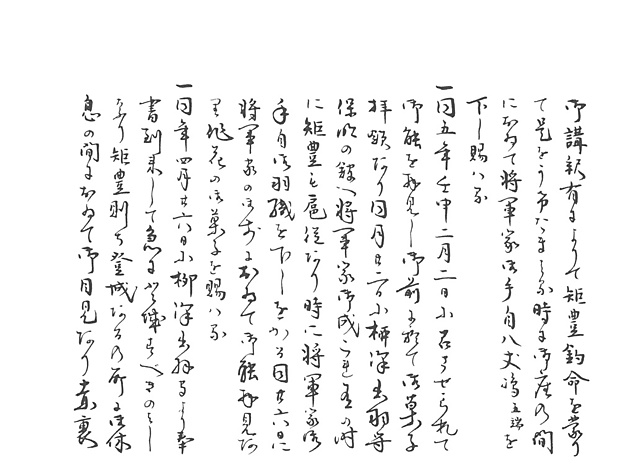 御講釈有によりて矩豊鈞命を蒙り
て是をうけたまはる時に御座の間
において将軍家御手自八丈嶋五端を
下し賜はる
一同五年壬申二月二日に召させられて
御能を拝見し御前に於て御菓子
拝領なり同月廿二日に柳澤出羽守
保明の館へ将軍家御成これ有の時
に矩豊も扈従なり時に将軍家御
手自御羽織を下しをかる同廿六日に
将軍家の御前において御能拝見なり
且花の御菓子を賜はる
一同年四月廿六日に柳澤出羽守より奉
書到来して急に登城すへきのよし
なり矩豊則ち登城なるの所に御休
息の間において御目見なり素裏